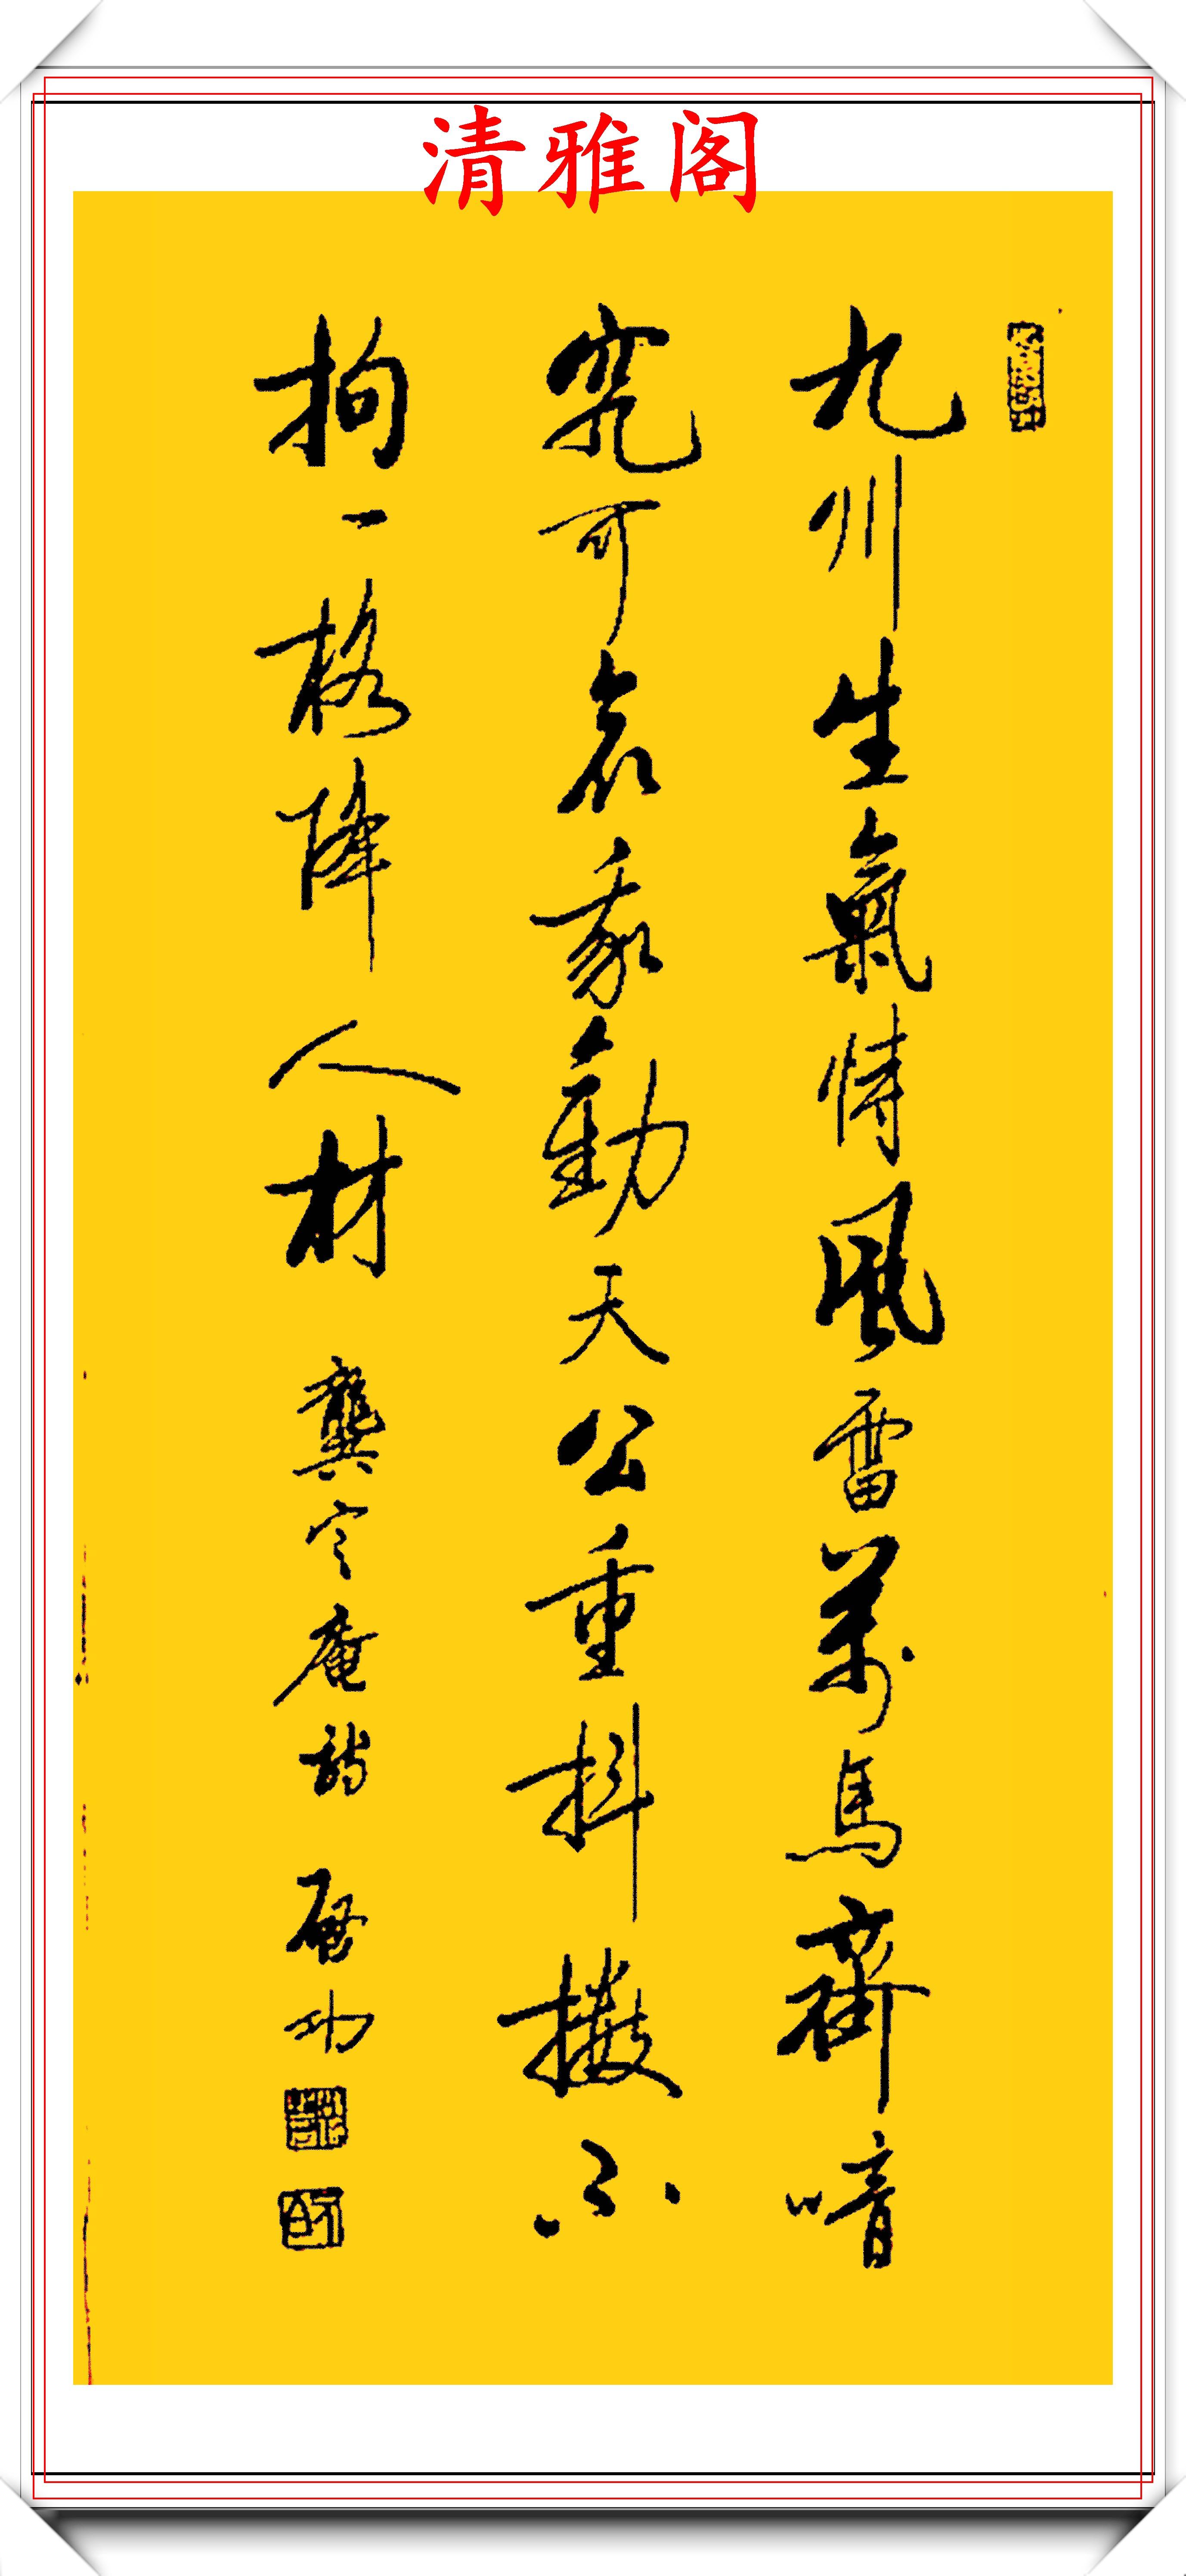 清雅阁
九州生氣恃風雷萬馬齊喑
究可哀我勸天公重抖擻不
拘一格降人材 龔定庵詩 啟功